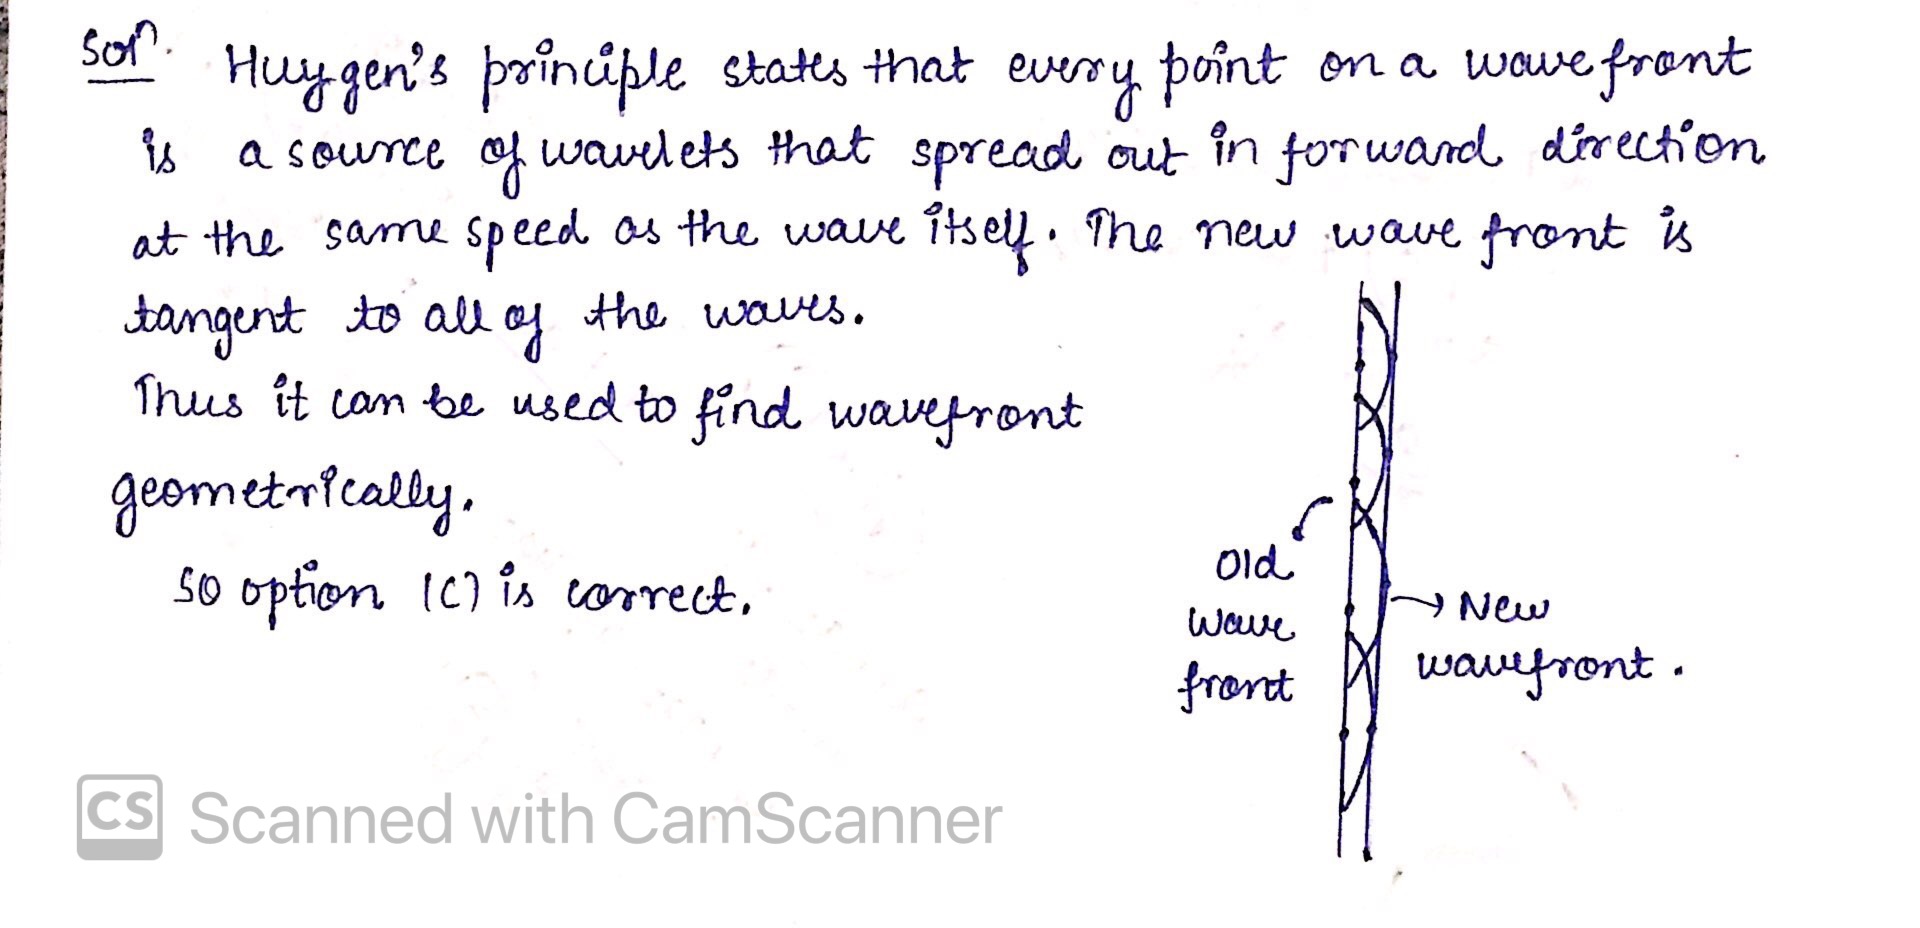 Solⁿ. Huygen's principle states that every point on a wavefront
is a source of wavelets that spread out in forward direction
at the same speed as the wave itself. The new wave front is
tangent to all of the waves.
Thus it can be used to find wavefront
geometrically.
So option (C) is correct.
Old
wave
front
→ New
wavefront.
CS Scanned with CamScanner